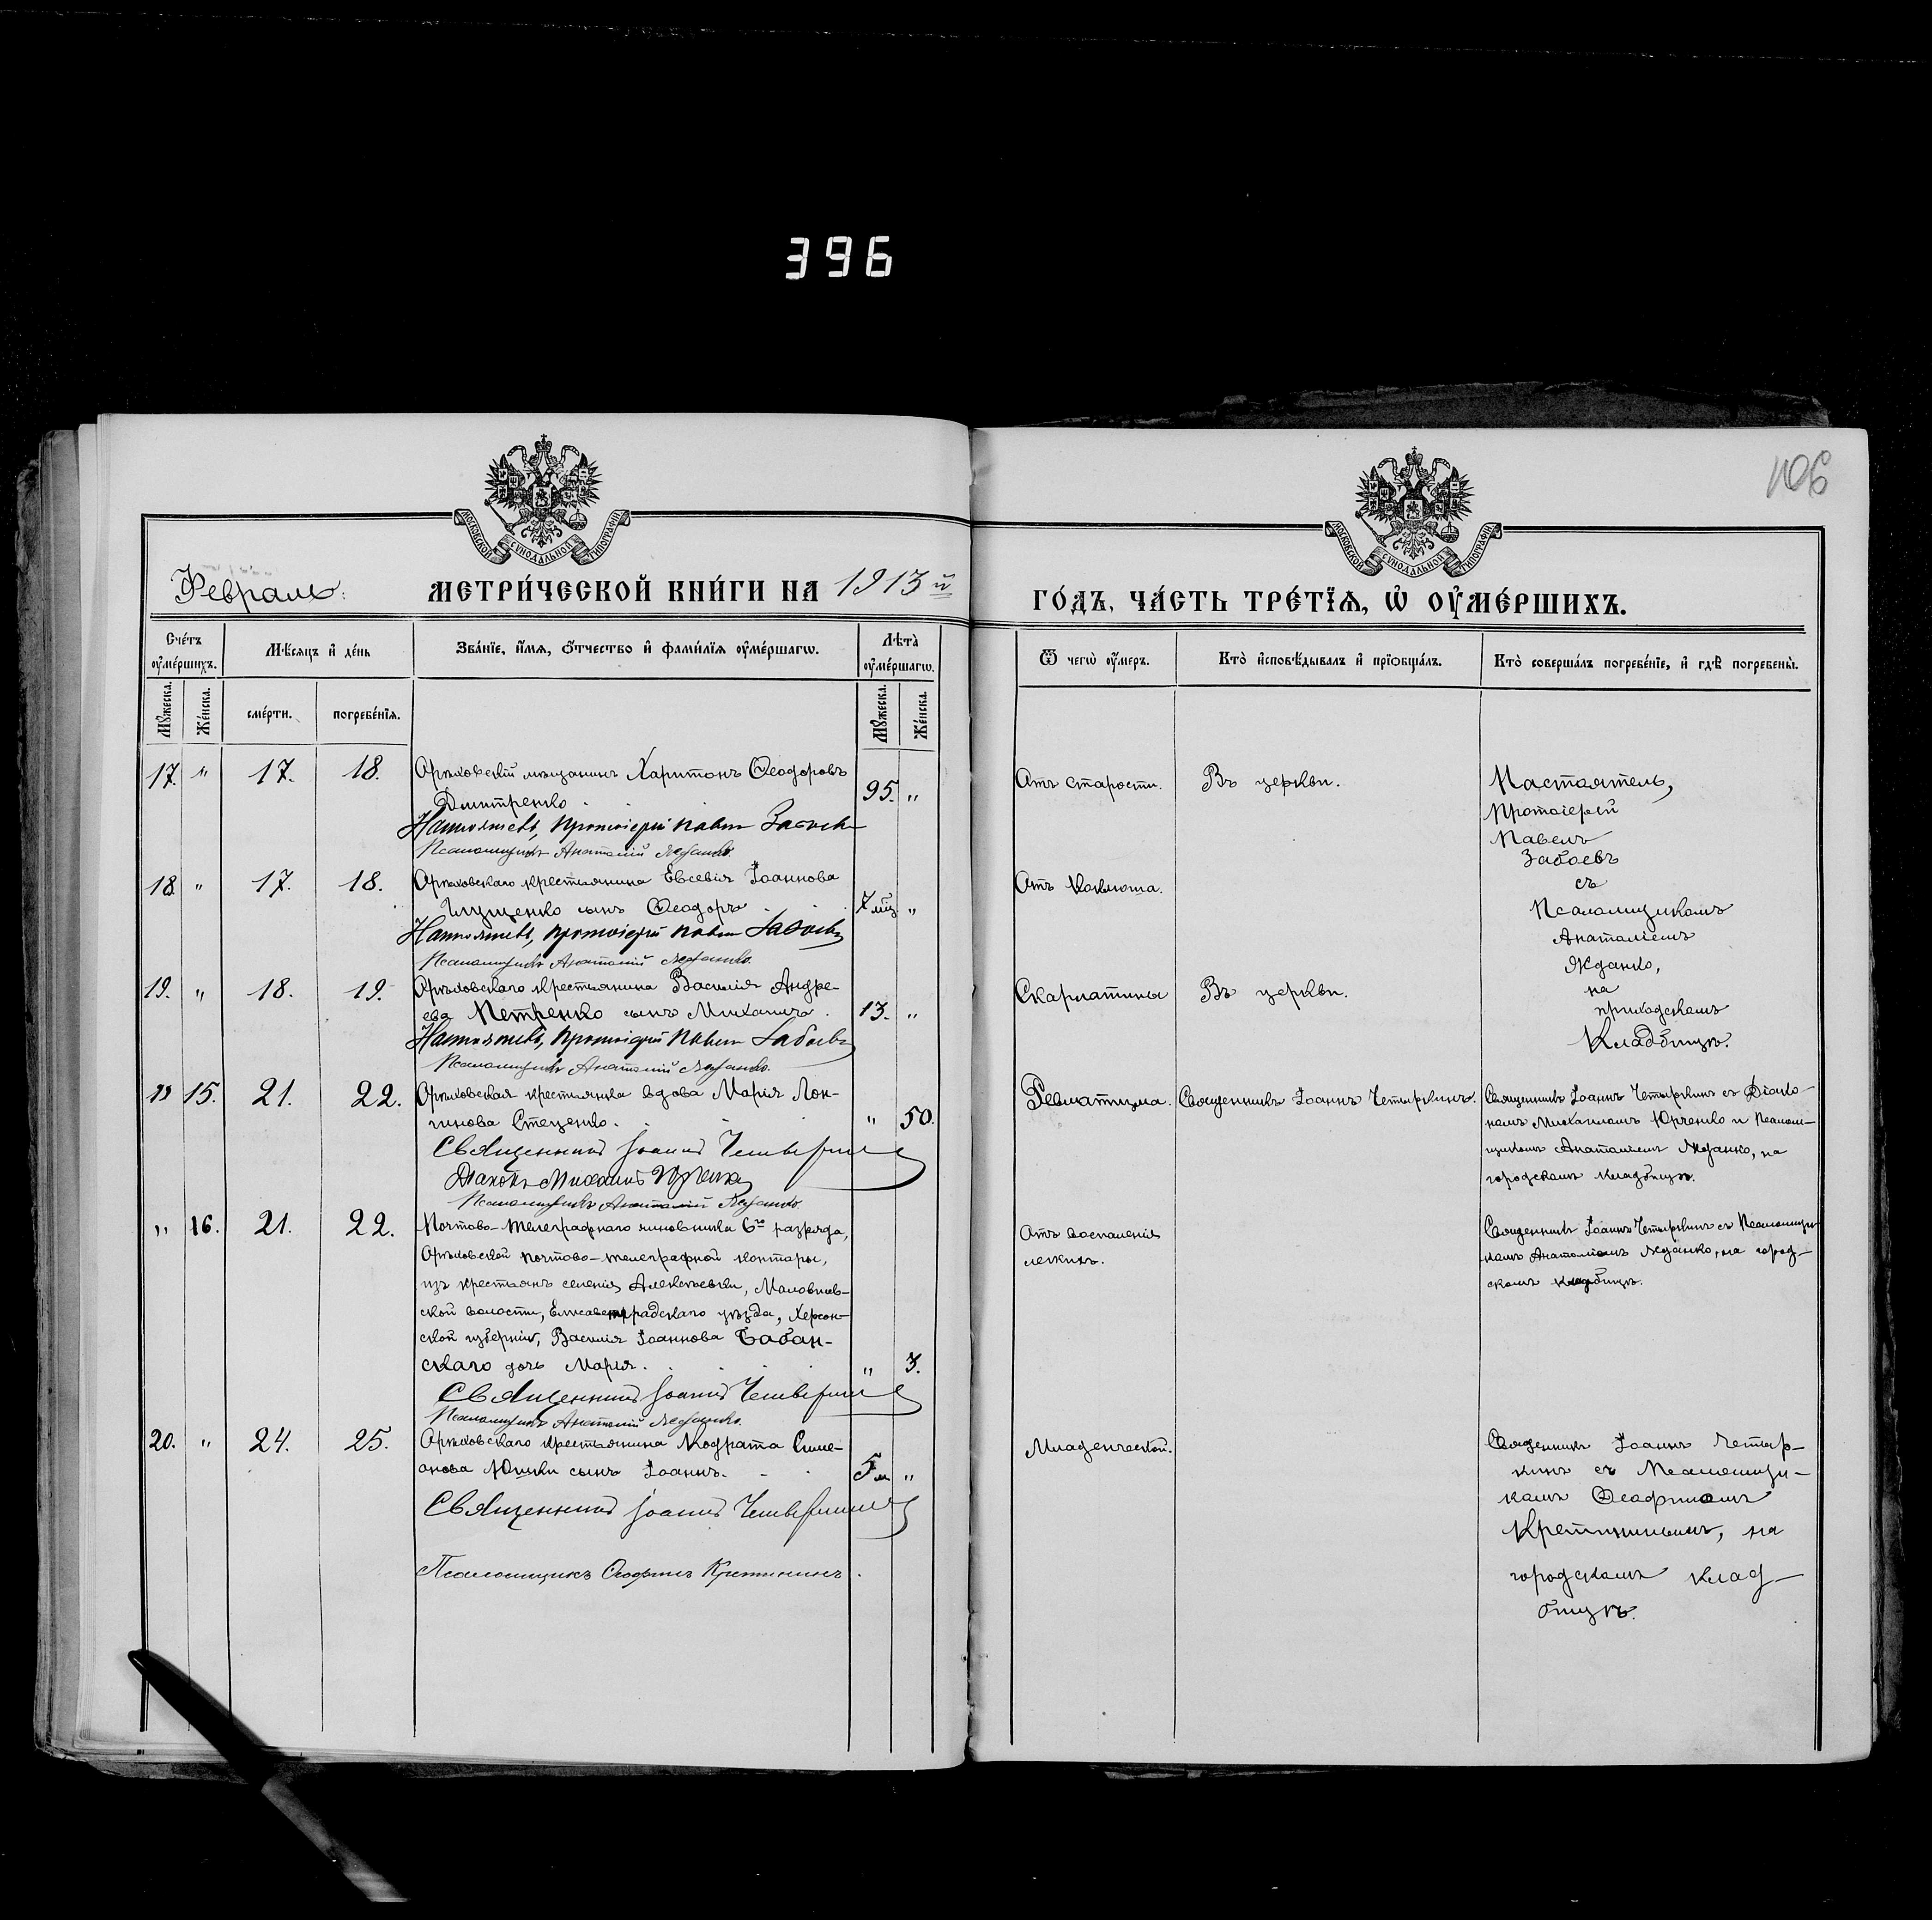 396
106
МОСКОВСКОЙ СУНОДАЛЬНОЙ ТИПОГРАФІИ
МОСКОВСКОЙ СУНОДАЛЬНОЙ ТИПОГРАФІИ
Февраль. МЕТРИ́ЧЕСКОЙ КНИ́ГИ НА 1913й
ГО́ДЪ, ЧА́СТЬ ТРЕ́ТЇѦ, Ѡ҆ ОУ҆МЕ́РШИХЪ.
Сче́тъ оу҆ме́ршихъ.
Мѣ́сяцъ и҆ де́нь
Зва́нїе, и҆́мѧ, ѻ҆́тчество и҆ фами́лїѧ оу҆ме́ршагѡ.
Лѣ́та оу҆ме́ршагѡ.
Ѿ чегѡ̀ оу҆́меръ.
Кто̀ и҆сповѣ́дывалъ и҆ прїѡбща́лъ.
Кто̀ соверша́лъ погребе́нїе, и҆ гдѣ̀ погребены̀.
Мꙋ́жеска. Же́нска. сме́рти. погребе́нїѧ. Мꙋ́жеска. Же́нска.
17. " 17. 18. Орѣховскій мѣщанинъ Харитонъ Ѳеодоровъ
Дмитренко. 95. "
Настоятель, протоіерей Павелъ Забоевъ
Псаломщикъ Анатолій Жданко.
Отъ старости. Въ церкви. Настоятель,
Протоіерей
Павелъ
Забоевъ
съ
Псаломщикомъ
Анатоліемъ
Жданко,
на
приходскомъ
Кладбищѣ.
18 " 17. 18. Орѣховскаго крестьянина Евсевія Іоаннова
Глущенко сынъ Ѳеодоръ. 7 мѣц. "
Настоятель, протоіерей Павелъ Забоевъ
Псаломщикъ Анатолій Жданко.
Отъ Коклюша.
19. " 18. 19. Орѣховскаго крестьянина Василія Андре-
ева Петренко сынъ Михаилъ. 13. "
Настоятель, протоіерей Павелъ Забоевъ
Псаломщикъ Анатолій Жданко.
Скарлатины Въ церкви.
" 15. 21. 22. Орѣховская крестьянка вдова Марія Лон-
гинова Стеценко. " 50.
Священникъ Іоаннъ Четыркинъ
Діаконъ Михаилъ Юрченко
Псаломщикъ Анатолій Жданко.
Ревматизма. Священникъ Іоаннъ Четыркинъ. Священникъ Іоаннъ Четыркинъ съ Діако-
номъ Михаиломъ Юрченко и Псалом-
щикомъ Анатоліемъ Жданко, на
городскомъ кладбищѣ.
" 16. 21. 22. Почтово-телеграфнаго чиновника 6го разряда,
Орѣховской почтово-телеграфной конторы,
изъ крестьянъ селенія Алексѣевки,
ской волости, Елисаветградскаго уѣзда, Херсон-
ской губерніи, Василія Іоаннова Бабан-
скаго дочь Марія. " 3.
Священникъ Іоаннъ Четыркинъ
Псаломщикъ Анатолій Жданко.
Отъ воспаленія
легкихъ.
Священникъ Іоаннъ Четыркинъ съ Псаломщи-
комъ Анатоліемъ Жданко, на город-
скомъ кладбищѣ.
20. " 24. 25. Орѣховскаго крестьянина Кодрата Симе-
онова Юшки сынъ Іоаннъ. 5 м "
Священникъ Іоаннъ Четыркинъ
Псаломщикъ Ѳеофилъ Кретининъ.
Младенческой.
Священникъ Іоаннъ Четыр-
кинъ съ Псаломщи-
комъ Ѳеофиломъ
Кретининымъ, на
городскомъ клад-
бищѣ.